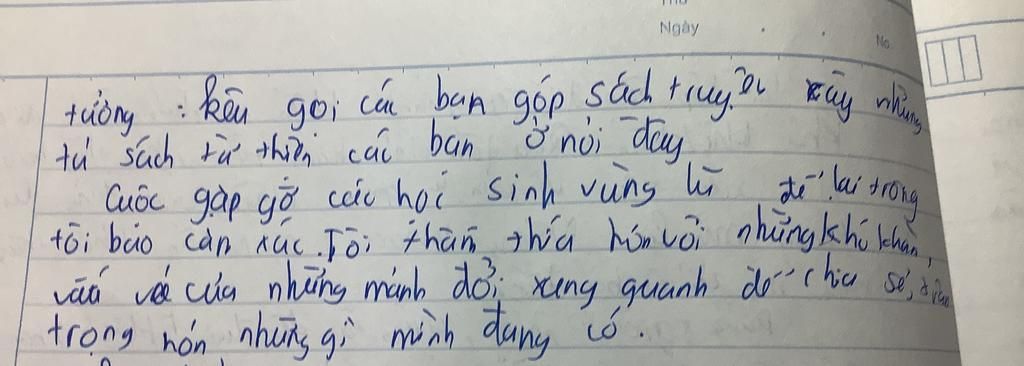 Thứ
Ngày
No.
tưởng : kêu gọi các bạn góp sách truyện xây những
tủ sách từ thiện các bạn ở nơi đây
Cuộc gặp gỡ các học sinh vùng lũ để lại trong
tôi bao cản xúc. Tôi thấm thía hơn với những khó khăn,
vất vả của những mảnh đời xung quanh để chia sẻ,
trọng hơn những gì mình đang có.